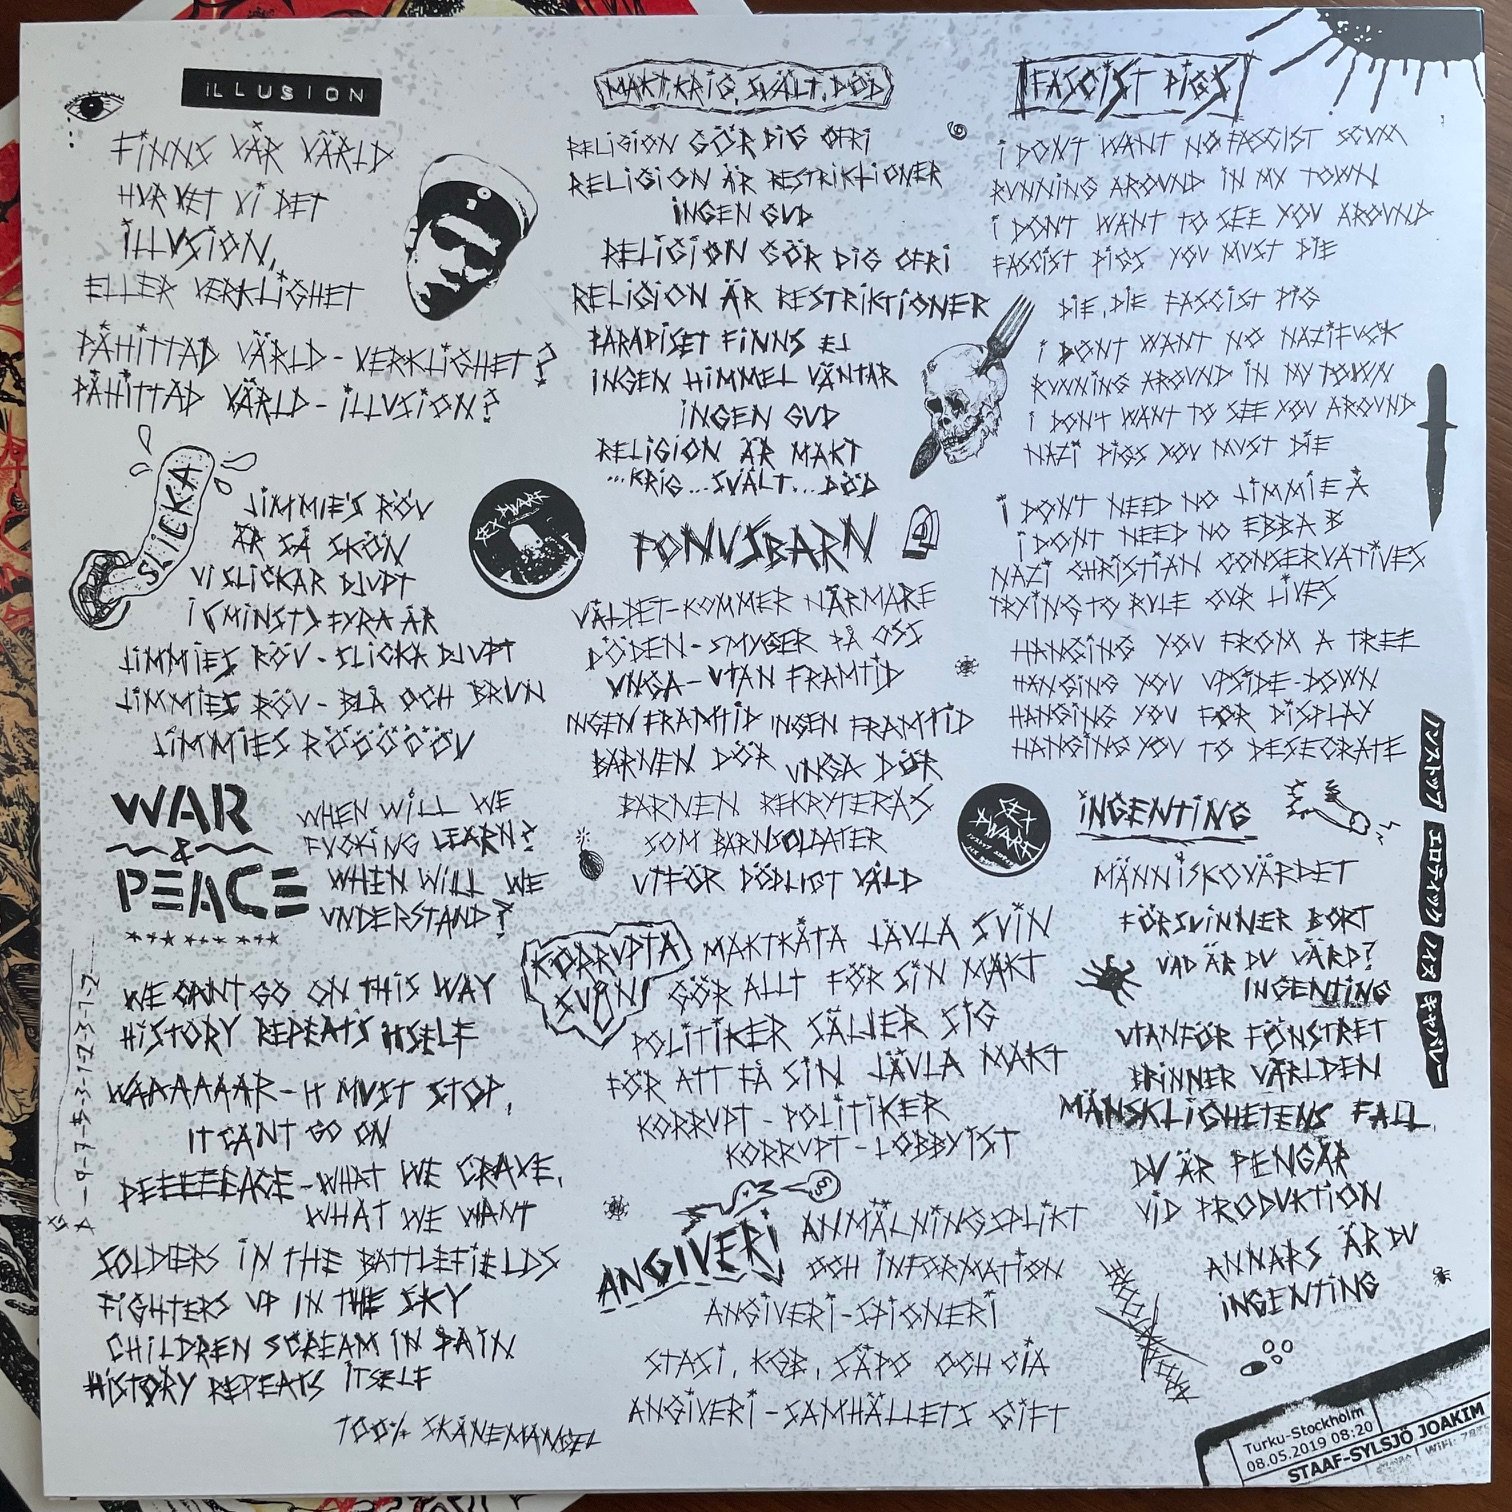 ILLUSION
FINNS VÅR VÄRLD
HUR VET VI DET
ILLUSION,
ELLER VERKLIGHET
PÅHITTAD VÄRLD - VERKLIGHET?
PÅHITTAD VÄRLD - ILLUSION?
SLICKA
JIMMIE'S RÖV
ÄR SÅ SKÖN
VI SLICKAR DJUPT
I (MINST) FYRA ÅR
JIMMIES RÖV - SLICKA DJUPT
JIMMIES RÖV - BLÅ OCH BRUN
JIMMIES RÖÖÖÖÖV
WAR
&
PEACE
WHEN WILL WE
FUCKING LEARN?
WHEN WILL WE
UNDERSTAND?
WE CANT GO ON THIS WAY
HISTORY REPEATS ITSELF
WAAAAAAR - IT MUST STOP,
IT CANT GO ON
PEEEEEACE - WHAT WE CRAVE,
WHAT WE WANT
SOLDIERS IN THE BATTLEFIELDS
FIGHTERS UP IN THE SKY
CHILDREN SCREAM IN PAIN
HISTORY REPEATS ITSELF
100% SKÅNEMANGEL
MAKT, KRIG, SVÄLT, DÖD
RELIGION GÖR DIG OFRI
RELIGION ÄR RESTRIKTIONER
INGEN GUD
RELIGION GÖR DIG OFRI
RELIGION ÄR RESTRIKTIONER
PARADISET FINNS EJ
INGEN HIMMEL VÄNTAR
INGEN GUD
RELIGION ÄR MAKT
...KRIG...SVÄLT...DÖD
SEX DWARF
FONUSBARN
VÅLDET - KOMMER NÄRMARE
DÖDEN - SMYGER PÅ OSS
UNGA - UTAN FRAMTID
INGEN FRAMTID INGEN FRAMTID
BARNEN DÖR UNGA DÖR
BARNEN REKRYTERAS
SOM BARNSOLDATER
UTFÖR DÖDLIGT VÅLD
KORRUPTA
SVIN
MAKTKÅTA JÄVLA SVIN
GÖR ALLT FÖR SIN MAKT
POLITIKER SÄLJER SIG
FÖR ATT FÅ SIN JÄVLA MAKT
KORRUPT - POLITIKER
KORRUPT - LOBBYIST
ANGIVERI
§
ANMÄLNINGSPLIKT
OCH INFORMATION
ANGIVERI - SPIONERI
STASI, KGB, SÄPO OCH CIA
ANGIVERI - SAMHÄLLETS GIFT
FASCIST PIGS
I DONT WANT NO FASCIST SCUM
RUNNING AROUND IN MY TOWN
I DON'T WANT TO SEE YOU AROUND
FASCIST PIGS YOU MUST DIE
DIE, DIE FASCIST PIG
I DONT WANT NO NAZIFUCK
RUNNING AROUND IN MY TOWN
I DON'T WANT TO SEE YOU AROUND
NAZI PIGS YOU MUST DIE
I DON'T NEED NO JIMMIE Å
I DONT NEED NO EBBA B
NAZI CHRISTIAN CONSERVATIVES
TRYING TO RULE OUR LIVES
HANGING YOU FROM A TREE
HANGING YOU UPSIDE-DOWN
HANGING YOU FOR DISPLAY
HANGING YOU TO DESECRATE
SEX
DWARF
INGENTING
MÄNNISKOVÄRDET
FÖRSVINNER BORT
VAD ÄR DU VÄRD?
INGENTING
UTANFÖR FÖNSTRET
BRINNER VÄRLDEN
MÄNSKLIGHETENS FALL
DU ÄR PENGAR
VID PRODUKTION
ANNARS ÄR DU
INGENTING
ノンストップ
エロティック
ノイズ
キャバレー
Turku-Stockholm
08.05.2019 08:20
STAAF-SYLSJÖ JOAKIM
WiFi: